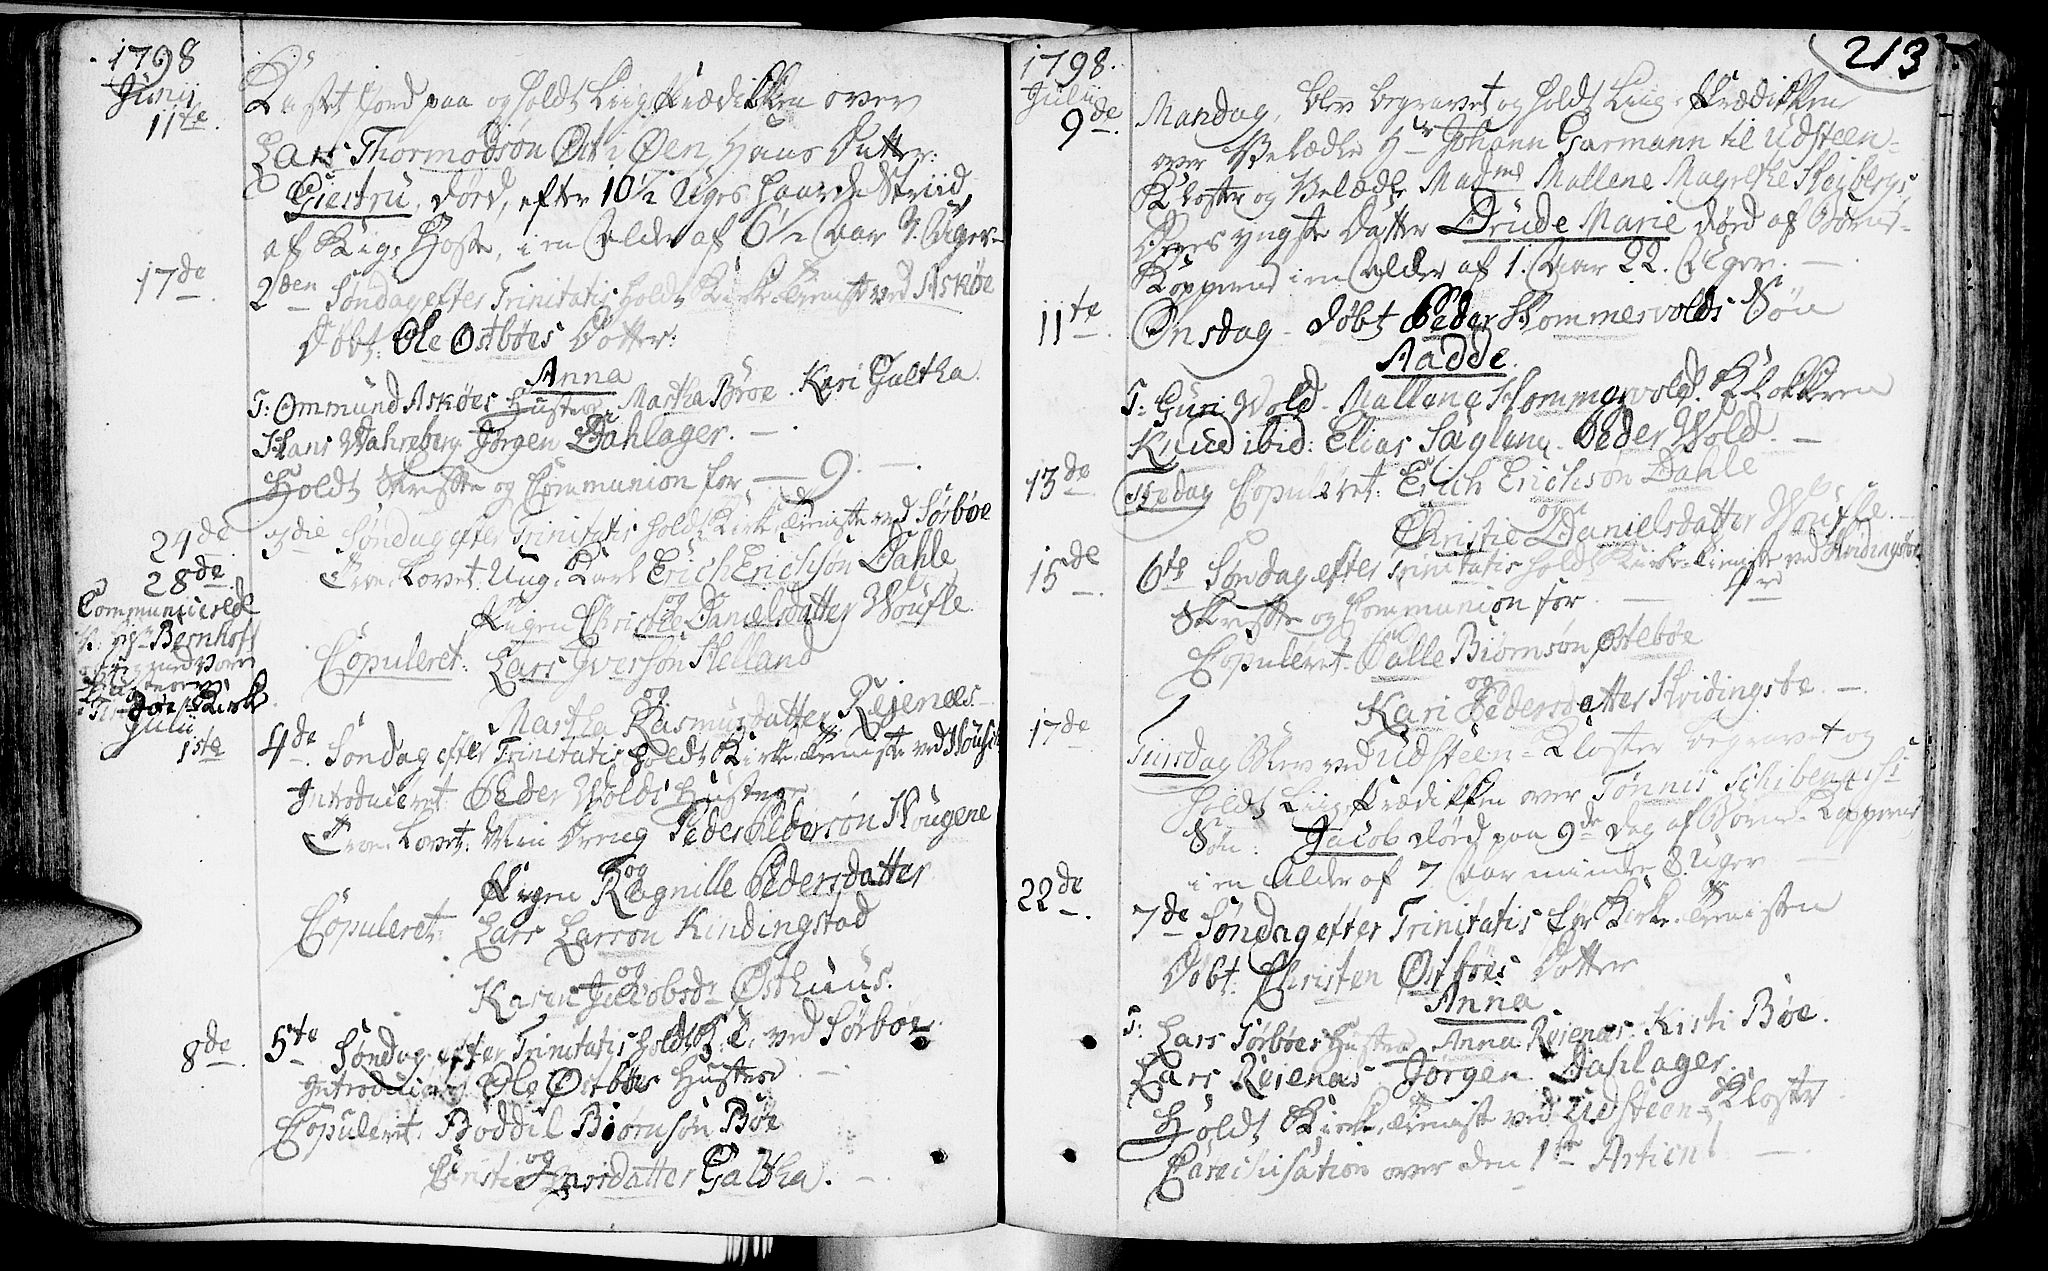 1798
Junij
11te.
Kastet Jord paa og holdt Liig Prædikken over
Lars Thormodsøn Øst i Øen, Hans Datter:
Giestru, død, efter 10 1/2 Uges haarde Striid
af Kig-Hoste, i en Alder af 6 1/2 Aar 7. Uger.
17de
2den Søndag efter Trinitatis holdt Kirke-Tieniste ved Askøe
Døbt: Ole Ostbøes Dotter:
Anna
T: Ommund Askøes Hustroe, Martha Broe. Kari Galtha
Hans Wahreberg. Jørgen Dahlager. —.
Holdt Skrifte og Communion for — 9. —.
24de
3die Søndag efter Trinitatis holdt Kirk Tieniste ved Sørbøe
28de
Troe-Lovet: Ung-Karl Erich Erichsøn Dahle
og
Pigen Christie Danielsdatter Woufle.
Communicerede
Bernhoft
med vores
Copuleret: Lars Iversøn Helland
og
Martha Rasmusdatter Reienæs
Kirk
Julii
1ste
4de. Søndag efter Trinitatis holdt Kirke Tieniste ved
Introduceret: Peder Wolds Hustroe
Troe-Lovet: Min Dreng Peder Pedersøn Hougene
og
Pigen Ragnille Pedersdatter
Copuleret: Lars Larson Kindingstad
og
Karen Jacobsdr Østhuus.
8de.
5te Søndag efter Trinitatis holdt K. T. ved Sørboe
Introduceret Ole Ostbøes Hustroe
Copuleret: Boddel Biørnsøn Bøe
og
Cirsti Omsdatter Galtha. —.
213
1798.
Julii
9de.
Mandag, blev begravet og holdt Liig-Prædikken
over Velædle Hr Johann Garmann til Udsteen-
Kloster og Velædle Madme Mallene Magrethe Heibergs,
Deres yngste Datter Drude Marie død af Børne-
Kopperne i en Alder af 1. Aar 22. Uger. —.
11te.
Onsdag - døbt Peder Hommersvolds Søn
Aadde.
T: Guri Wold. Mallena Hommersvold. Klokkeren
Knud ibid: Elias Saglum. Peder Wold. —
13de.
Fredag Copuleret: Erich Erichson Dahle
og
Christie Danielsdatter Woufle. —
15de.
6te Søndag efter Trinitatis holdt Kirke-Tieniste ved Hvidingsøe
Skrifte og Communion for. —
Copuleret: Palle Biørnsøn Østebøe
og
Kari Pedersdatter Hvidingsøe. —.
17de
Tiirsdag Blev ved Udsteen-Kloster begravet og
holdt Liig-Prædikken over Tønnis Schibenæsi
Søn: Jacob død paa 9de Dag af Børne-Kopperne,
i en Alder af 7 Aar minder 8. Uger —
22de.
7de Søndag efter Trinitatis før Kirke-Tienisten
Døbt: Christen Østbøes Dotter
Anna
T: Lars Sørbøes Hustroe. Anna Reienæs. Kisti Bøe.
Lars Reienæs Jørgen Dahlager.
Holdt Kirke-Tieniste ved Udsteen-Kloster
Catechisation over den 1te Articul —.